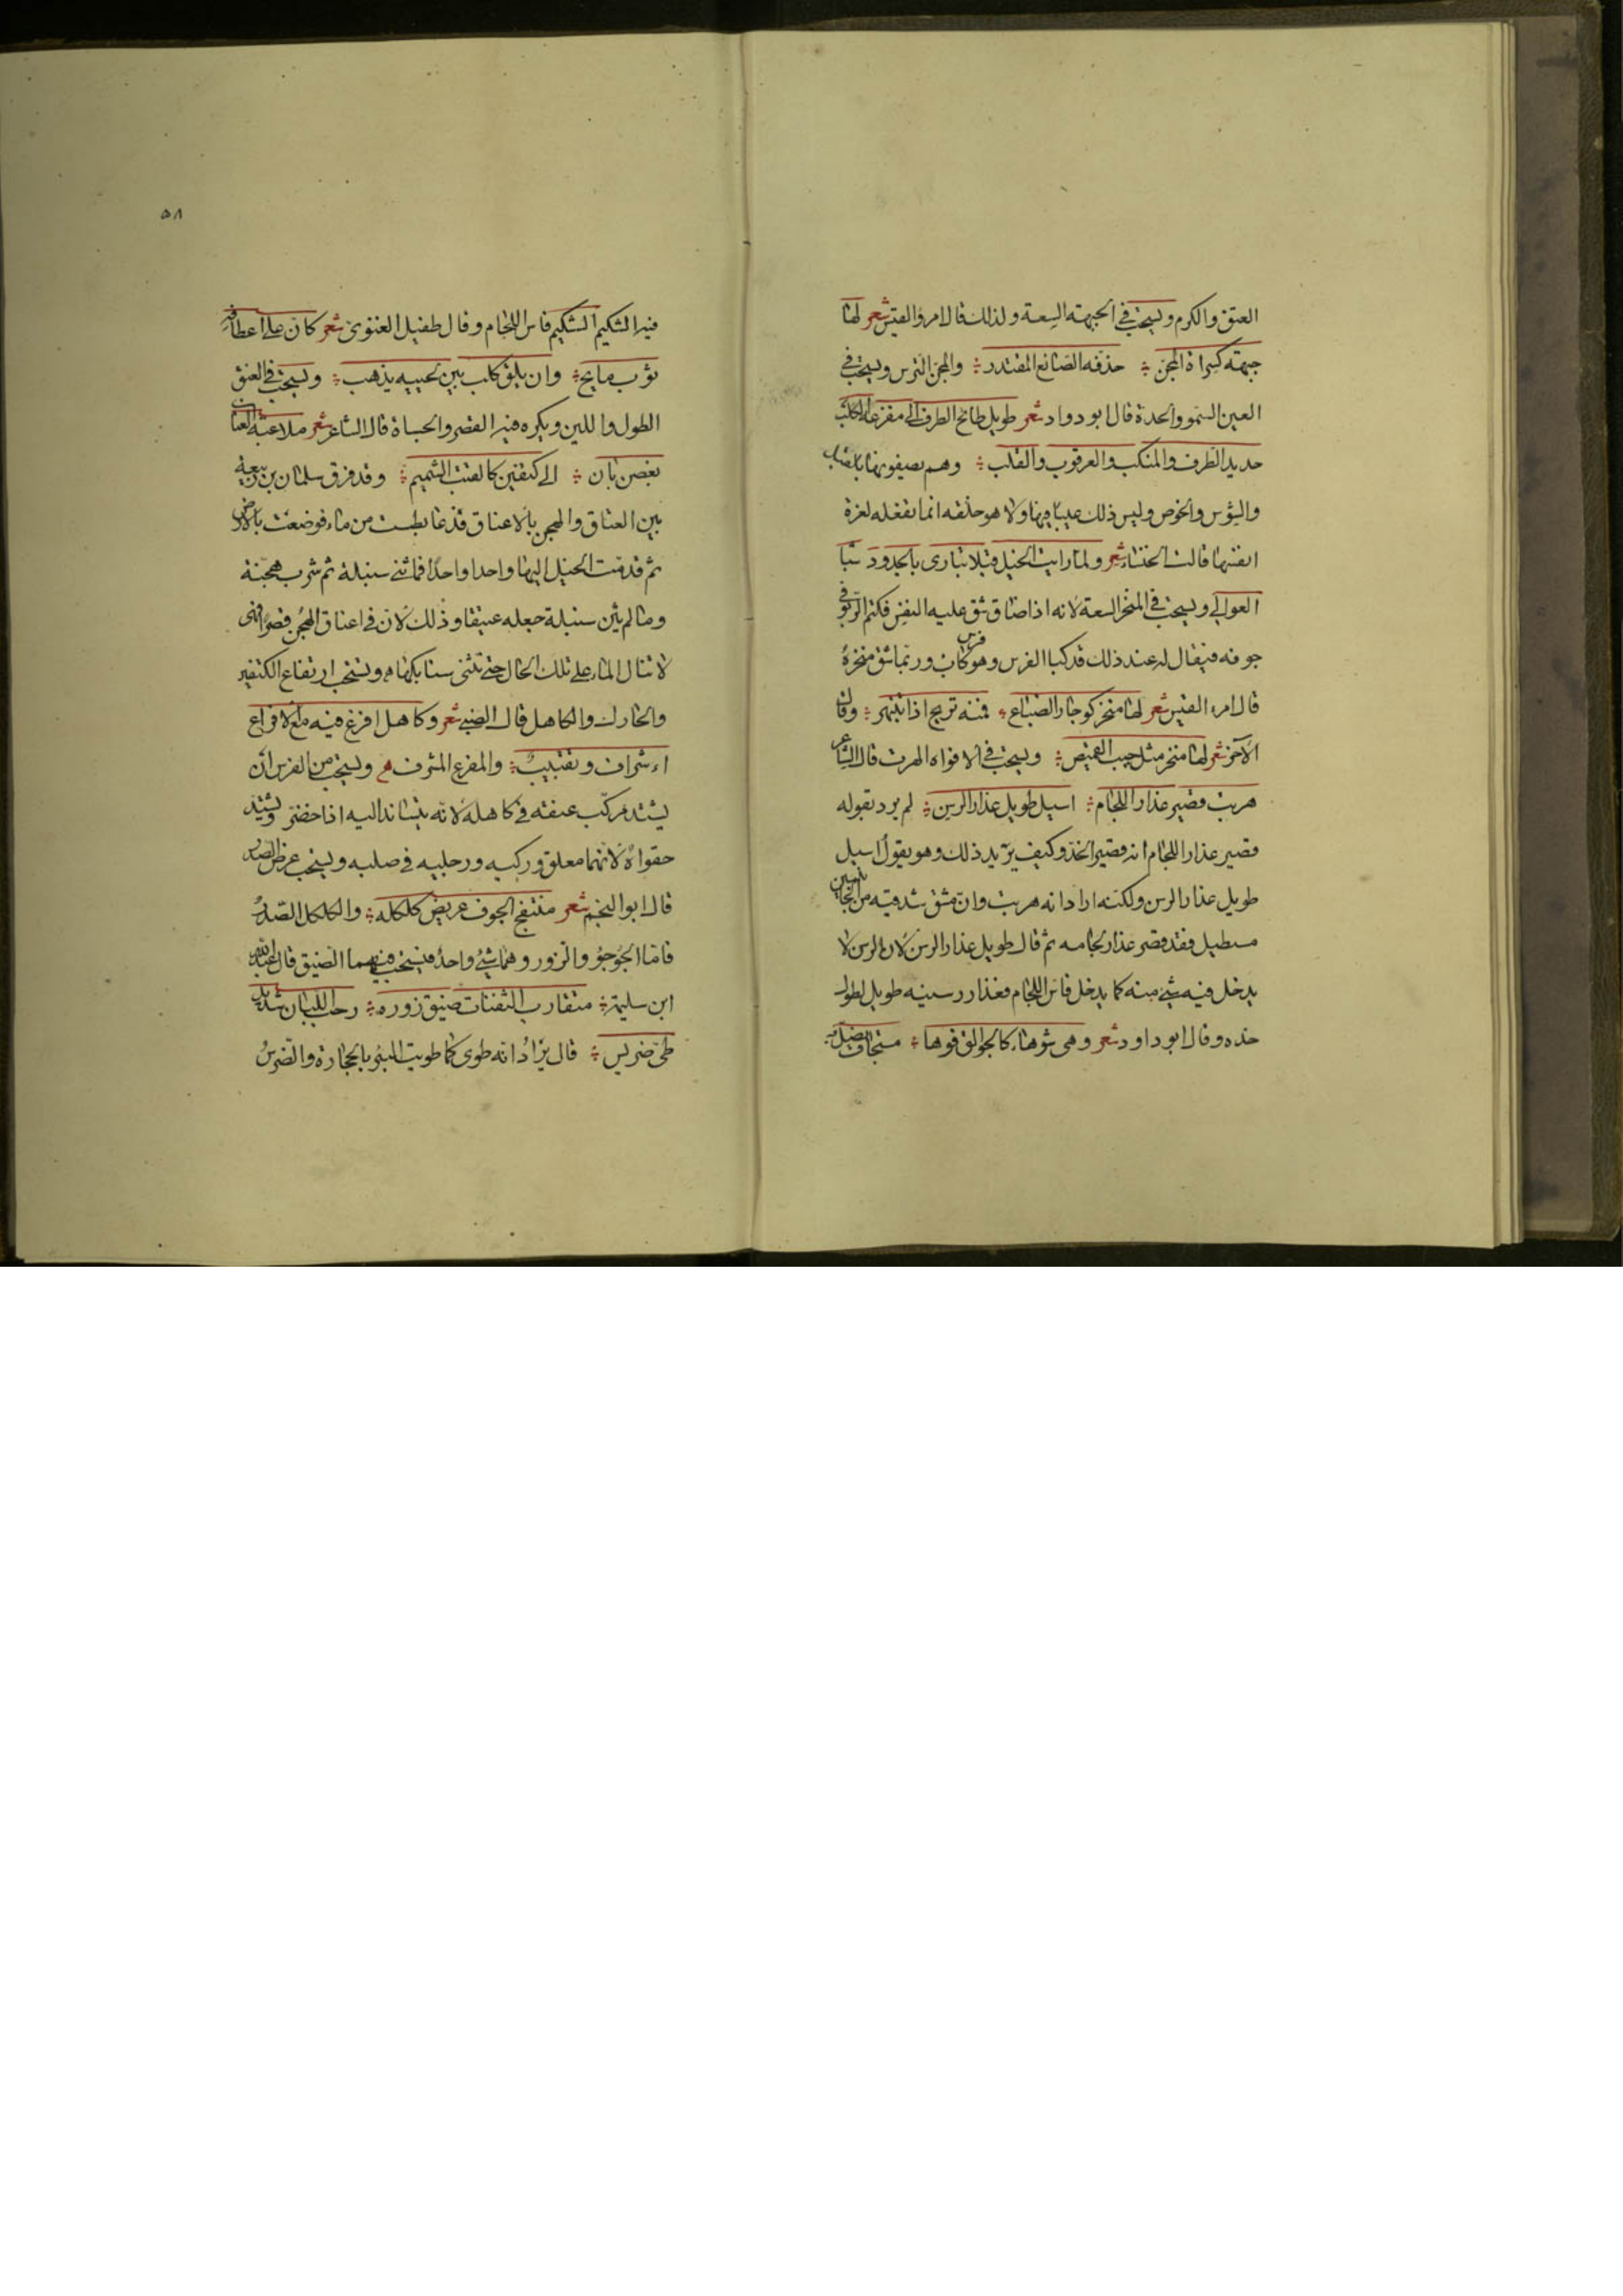 العتق والكرم ويستحب في الجبهة السعة ولذلك قال امرؤ القيس شعر لها
جبهة كسراة المجن ؞ حذفه الصانع المقتدر ؞ والمجن الترس ويستحب في
العين السمو والحدة قال ابو دواد شعر طويل طامح الطرف الى مفزعة الكلب
حديد الطرف والمنكب والعرقوب والقلب ؞ وهم يصفونها بالقبل
والشوس والخوص وليس ذلك عيبا فيها ولا هو خلقه انما تفعله لعزة
انفسها قالت الخنساء شعر ولما رايت الخيل قبلا تبارى بالخدود شبا
العوالي ويستحب في المنخر السعة لانه اذا ضاق شق عليه النفس فكتم الربو في
جوفه فيقال له عند ذلك قد كبا الفرس وهو فرس كاب وربما شق منخره
قال امرء القيس شعر لها منخر كوجار الضباع ؞ فمنه تريح اذا تنبهر ؞ وقال
الآخر شعر لها منخر مثل جيب القميص ؞ ويستحب في الافواه الهرت قال الشاعر
هريت قصير عذار اللجام ؞ اسيل طويل عذار الرسن ؞ لم يرد بقوله
قصير عذار اللجام انه قصير الخد وكيف يريد ذلك وهو يقول اسيل
طويل عذار الرسن ولكنه اراد انه هريت وان مشق شدقيه من الجانبين
مستطيل فقد قصر عذار لجامه ثم قال طويل عذار الرسن لان الرسن لا
يدخل فيه شئ منه كما يدخل فاس اللجام فعذار رسنه طويل لطول
خده وقال ابو داود شعر وهى شوهاء كالجوالق فوها ؞ مستجاف يضل
فيه الشكيم الشكيم فاس اللجام وقال طفيل الغنوى شعر كان على اعطافه
ثوب مايح ؞ وان يلق كلب بين لحييه يذهب ؞ ويستحب في العنق
الطول واللين ويكره فيه القصر والجساة قال الشاعر شعر ملاعبة العنان
بغصن بان ؞ الى كتفين كالقتب الشميم ؞ وقد فرق سلمان بن ربيعة
بين العتاق والهجن بالاعناق فدعا بطست من ماء فوضعت بالارض
ثم قدمت الخيل اليها واحدا واحدا فما ثنى سنبكه ثم شرب هجنه
وما لم يثن سنبكه جعله عتيقا وذلك لان في اعناق الهجن قصرا فهى
لا تنال الماء على تلك الحال حتى تثنى سنابكها ويستحب ارتفاع الكتفين
والحارك والكاهل قال الضبي شعر وكاهل افرع فيه مع الافراع
اشراف وتقبيب ؞ والمفرع المشرف ؞ ويستحب من الفرس ان
يشتد مركب عنقه في كاهله لانه يتساند اليه اذا حضر ويشتد
حقواه لانهما معلق وركيه ورجليه في صلبه ويستحب عرض الصدر
قال ابو النجم شعر منتفج الجوف عريض كلكله ؞ والكلكل الصدر
فاما الجوجو والزور وهما شئ واحد فيستحب فيهما الضيق قال عبد الله
ابن سليمة ؞ متقارب الثفنات ضيق زوره ؞ رحب اللبان شديد
طى ضريس ؞ قال يراد انه طوى كما طويت البئر بالحجارة والضرس
٥٨